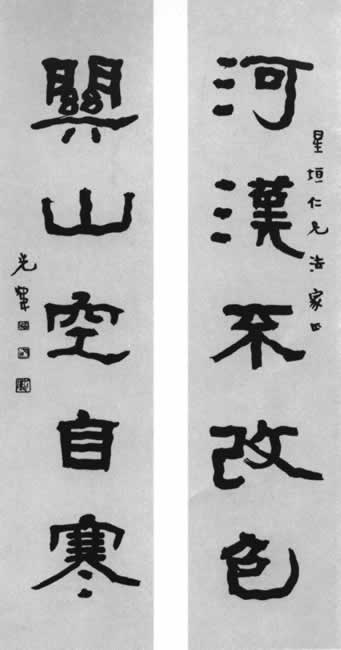 河漢不改色
星垣仁兄法家
關山空自寒
光煒